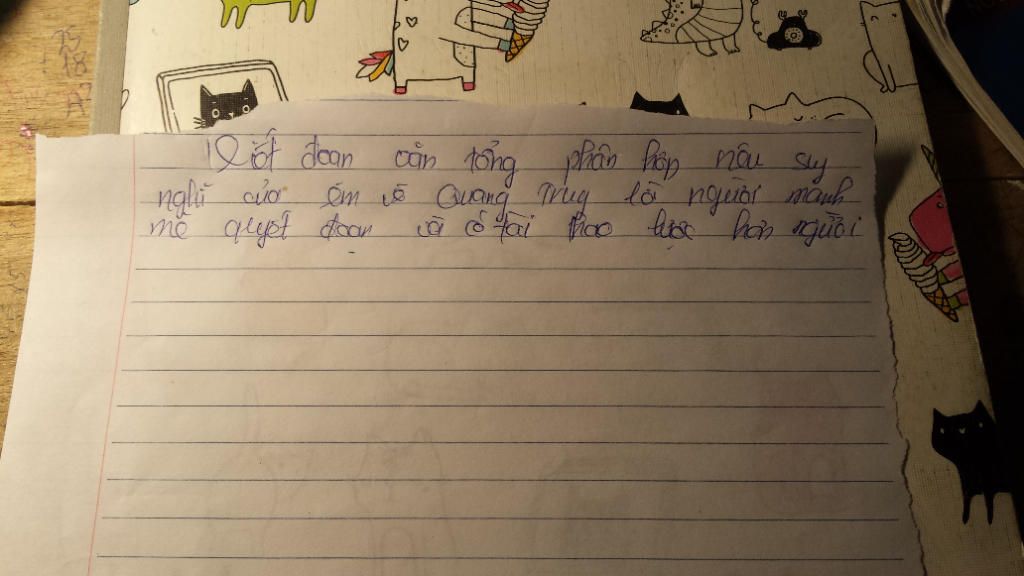 Viết đoạn văn tổng phân hợp nêu suy
nghĩ của em về Quang Trug là người mạnh
mẽ quyết đoạn và có tài thao lược hơn người
15
18